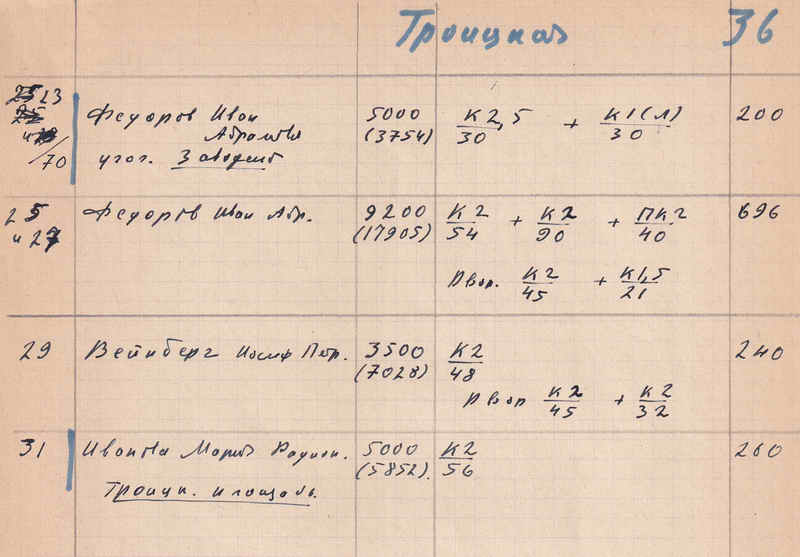 Троицкая 36
23
/70
Федоров Иван 5000 К2,5/30 + К1(Л)/30 200
(3754)
угол.
25 Федоров Иван Абр. 9200 К2/54 + К2/90 + ПК2/40 696
и 27 (17905)
Двор. К2/45 + К1,5/21
29 Вейнберг Иосиф Петр. 3500 К2/48 240
(7028)
Двор К2/45 + К2/32
31 Иванова Мария Родион. 5000 К2/56 260
(5852).
Троицк. площадь.